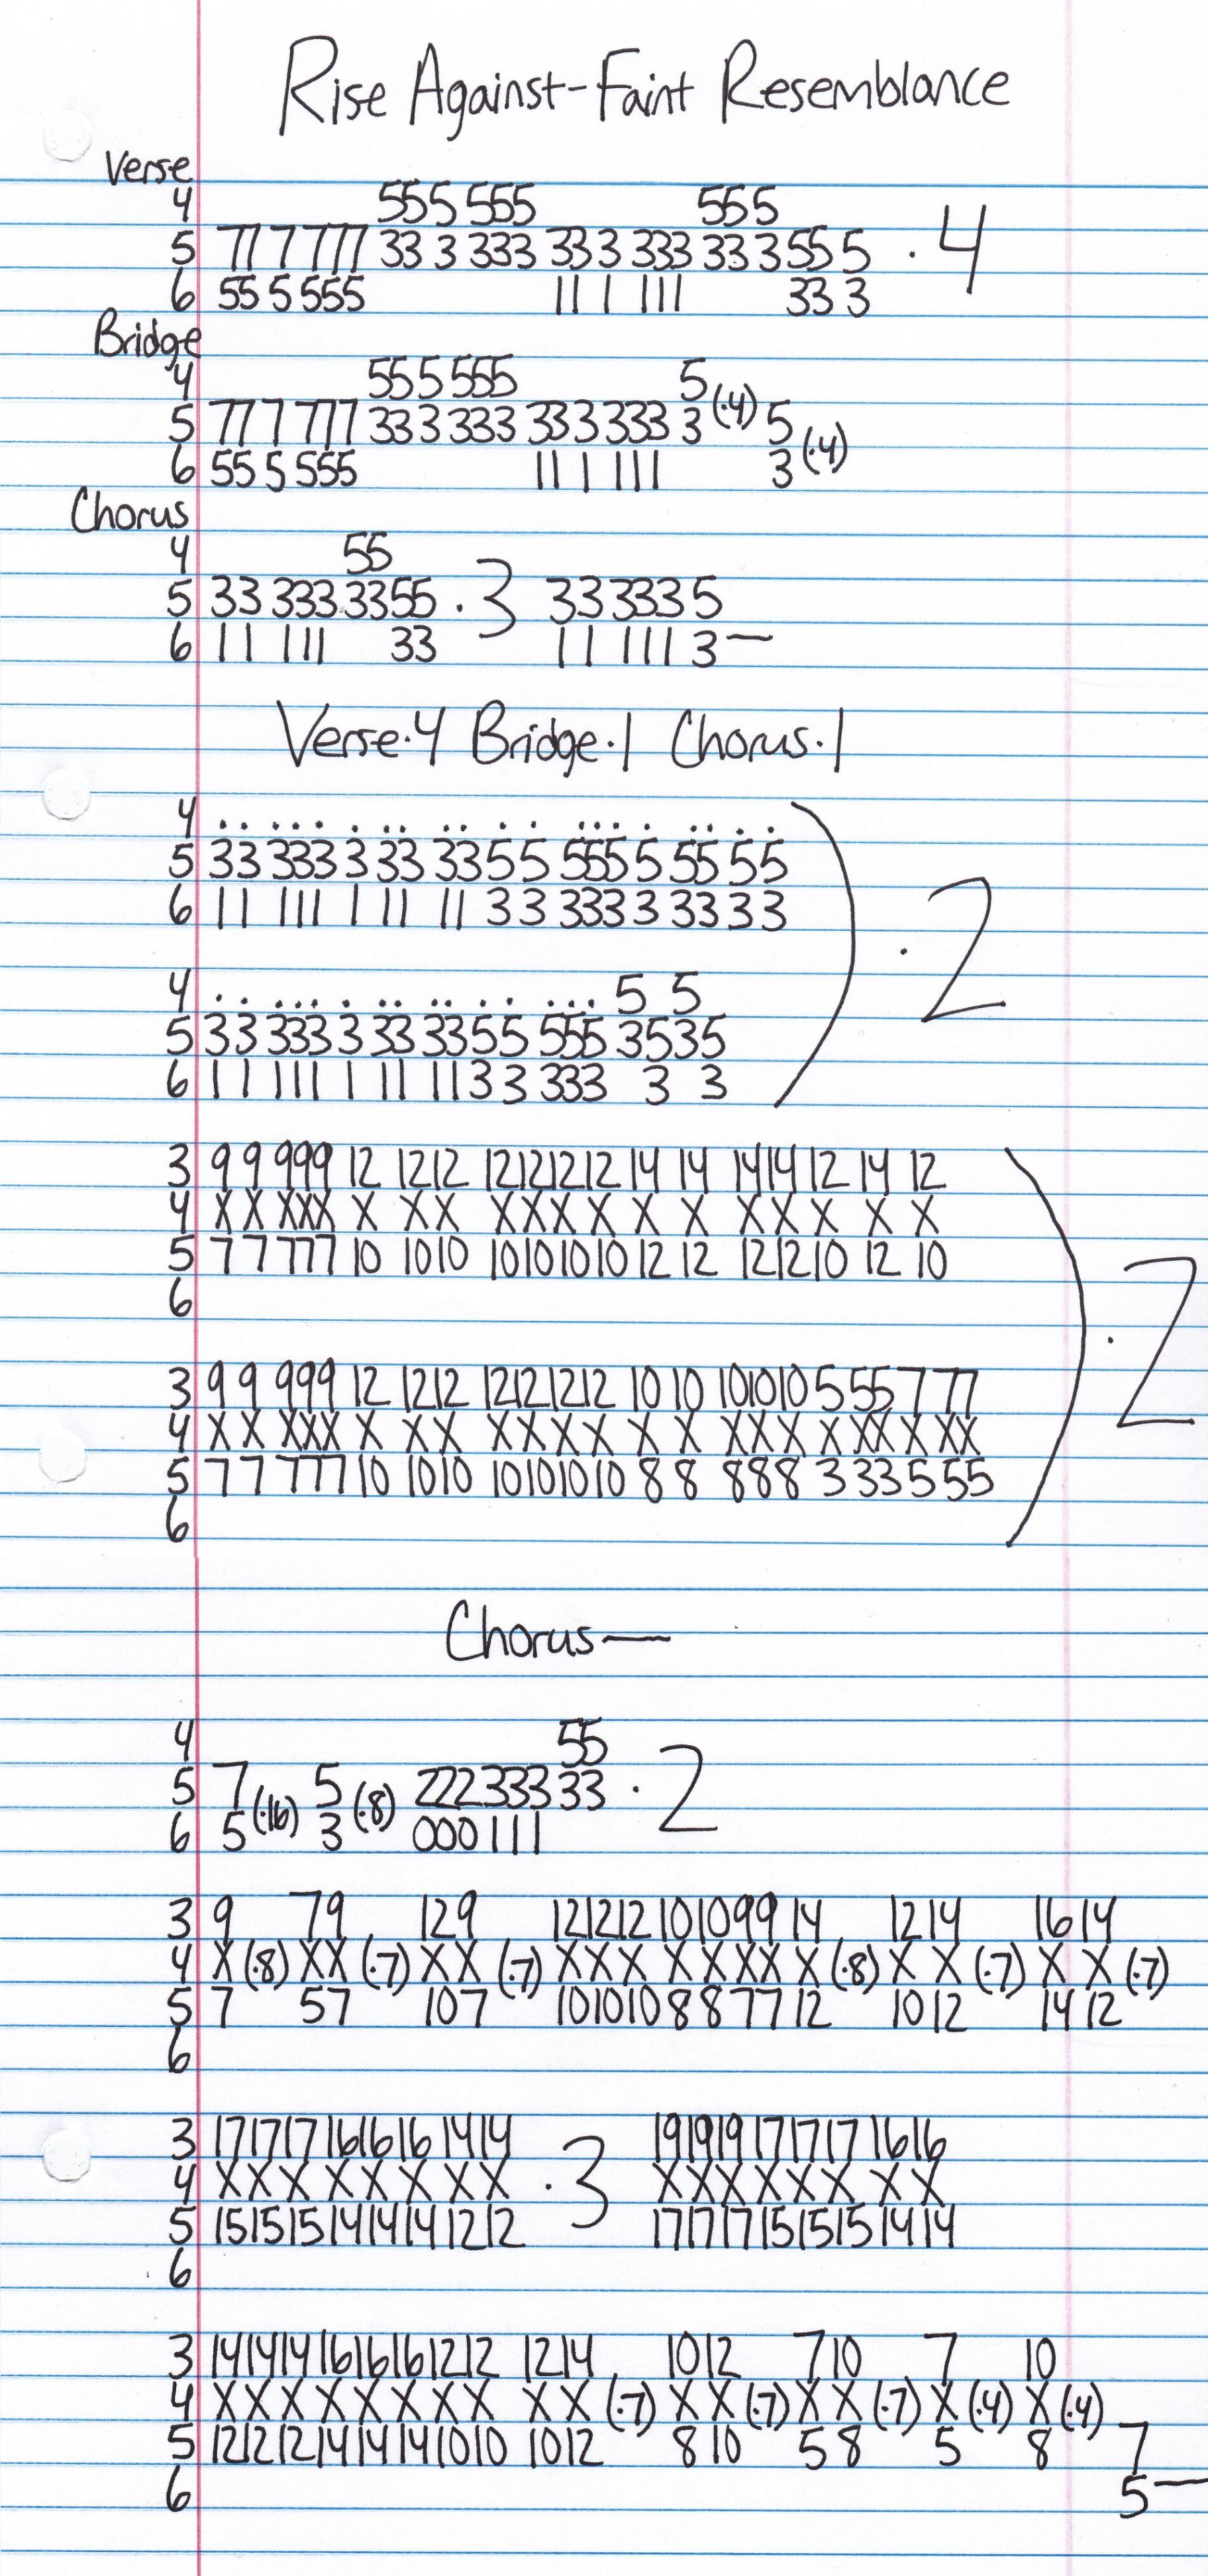 Rise Against-Faint Resemblance
Verse
4 555 555 555
5 777 777 333 333 333 333 333 555 · 4
6 555 555 111 111 33 3
Bridge
4 555 555 5
5 777 777 333 333 333 333 3 (·4) 5
6 555 555 111 111 3 (·4)
Chorus
4 55
5 33 333 3355 · 3 33 333 5
6 11 111 33 11 111 3—
Verse·4 Bridge·1 Chorus·1
4 . . . . . . . . . . . . . . . . . . . .
5 33 333 3 33 33 55 555 5 55 55
6 11 111 1 11 11 33 333 3 33 33
· 2
4 . . . . . . . . . . . . . . . 5 5
5 33 333 3 33 33 55 555 3535
6 11 111 1 11 11 33 333 3 3
3 9 9 999 12 12 12 12 12 12 12 14 14 14 14 12 14 12
4 X X XXX X X X X X X X X X X X X X X
5 7 7 777 10 10 10 10 10 10 10 12 12 12 12 10 12 10
6
· 2
3 9 9 999 12 12 12 12 12 12 12 10 10 10 10 10 5 55 7 77
4 X X XXX X X X X X X X X X X X X X XX X XX
5 7 7 777 10 10 10 10 10 10 10 8 8 8 8 8 3 33 5 55
6
Chorus—
4 55
5 7 (·16) 5 (·8) 222333 33 · 2
6 5 3 000111
3 9 79 12 9 12 12 12 10 10 9 9 14 12 14 16 14
4 X (·8) XX (·7) X X (·7) X X X X X X X X (·8) X X (·7) X X (·7)
5 7 57 10 7 10 10 10 8 8 7 7 12 10 12 14 12
6
3 17 17 17 16 16 16 14 14 19 19 19 17 17 17 16 16
4 X X X X X X X X · 3 X X X X X X X X
5 15 15 15 14 14 14 12 12 17 17 17 15 15 15 14 14
6
3 14 14 14 16 16 16 12 12 12 14 10 12 7 10 7 10
4 X X X X X X X X X X (·7) X X (·7) X X (·7) X (·4) X (·4)
5 12 12 12 14 14 14 10 10 10 12 8 10 5 8 5 8 7
6 5—